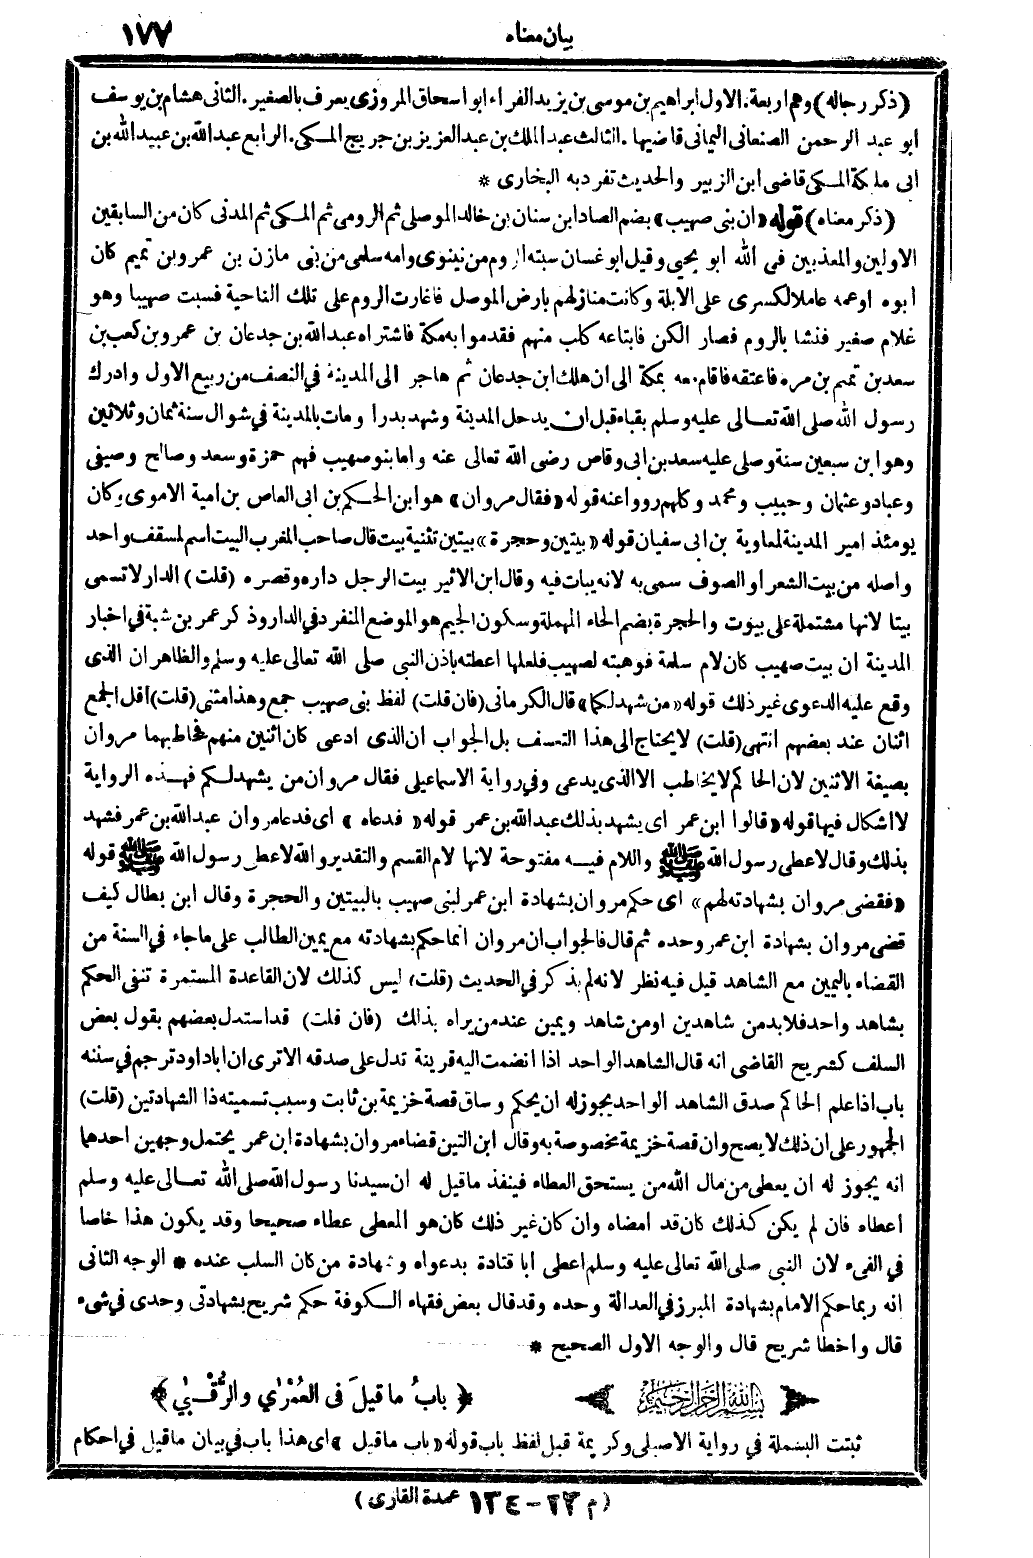 بيان معناه ١٧٧
(ذكر رجاله) وهم اربعة. الاول ابراهيم بن موسى بن يزيد الفراء ابو اسحاق المروزى يعرف بالصغير. الثانى هشام بن يوسف
ابو عبد الرحمن الصنعانى اليمانى قاضيها. الثالث عبد الملك بن عبد العزيز بن جريج المكى. الرابع عبد الله بن عبيد الله بن
ابى مليكة المكى قاضى ابن الزبير والحديث تفرد به البخارى *
(ذكر معناه) قوله «ان بنى صهيب» بضم الصاد ابن سنان بن خالد الموصلى ثم الرومى ثم المكى ثم المدنى كان من السابقين
الاولين والمعذبين فى الله ابو يحيى وقيل ابو غسان سبته الروم من نينوى وامه سلمى من بنى مازن بن عمرو بن تميم كان
أبوه اوعمه عاملا لكسرى على الابلة وكانت منازلهم بارض الموصل فاغارت الروم على تلك الناحية فسبت صهيبا وهو
غلام صغير فنشا بالروم فصار الكن فابتاعه كلب منهم فقدموا به مكة فاشتراه عبد الله بن جدعان بن عمرو بن كعب بن
سعد بن تميم بن مره فاعتقه فاقام معه بمكة الى ان هلك ابن جدعان ثم هاجر الى المدينة في النصف من ربيع الاول وادرك
رسول الله صلى الله تعالى عليه وسلم بقباء قبل ان يدخل المدينة وشهد بدرا ومات بالمدينة في شوال سنة ثمان وثلاثين
وهو ابن سبعين سنة وصلى عليه سعد بن ابى وقاص رضى الله تعالى عنه واما بنو صهيب فهم حمزة وسعد وصالح وصيفى
وعباد وعثمان وحبيب ومحمد وكلهم رووا عنه قوله «فقال مروان» هو ابن الحكم بن ابى العاص بن امية الاموى وكان
يومئذ امير المدينة لمعاوية بن ابى سفيان قوله «بيتين وحجرة» بيتين تثنية بيت قال صاحب المغرب البيت اسم لمسقف واحد
واصله من بيت الشعر أو الصوف سمى به لانه يبات فيه وقال ابن الاثير بيت الرجل داره وقصره (قلت) الدار لا تسمى
بيتا لانها مشتملة على بيوت والحجرة بضم الحاء المهملة وسكون الجيم هو الموضع المنفرد في الدار وذكر عمر بن شبة في اخبار
المدينة ان بيت صهيب كان لام سلمة فوهبته لصهيب فلعلها اعطته باذن النبى صلى الله تعالى عليه وسلم والظاهر ان الذى
وقع عليه الدعوى غير ذلك قوله «من شهد لكما» قال الكرمانى (فان قلت) لفظ بنى صهيب جمع وهذا مثنى (قلت) اقل الجمع
اثنان عند بعضهم انتهى (قلت) لا يحتاج الى هذا التعسف بل الجواب ان الذى ادعى كان اثنين منهم فخاطبهما مروان
بصيغة الاثنين لان الحاكم لا يخاطب الا الذى يدعى وفي رواية الاسماعيلى فقال مروان من يشهد لكم فهذه الرواية
لا اشكال فيها قوله «قالوا ابن عمر اى يشهد بذلك عبد الله بن عمر قوله «فدعاه» اى فدعا مروان عبد الله بن عمر فشهد
بذلك وقال لاعطى رسول الله ﷺ واللام فيه مفتوحة لانها لام القسم والتقدير والله لاعطى رسول الله ﷺ قوله
«فقضى مروان بشهادته لهم» اى حكم مروان بشهادة ابن عمر لبنى صهيب بالبيتين والحجرة وقال ابن بطال كيف
قضى مروان بشهادة ابن عمر وحده ثم قال فالجواب ان مروان انما حكم بشهادته مع يمين الطالب على ما جاء في السنة من
القضاء باليمين مع الشاهد قيل فيه نظر لانه لم يذكر في الحديث (قلت) ليس كذلك لان القاعدة المستمرة تنفى الحكم
بشاهد واحد فلابد من شاهدين او من شاهد ويمين عند من يراه بذلك (فان قلت) قد استدل بعضهم بقول بعض
السلف كشريح القاضى انه قال الشاهد الواحد اذا انضمت اليه قرينة تدل على صدقه الا ترى ان ابا داود ترجم في سننه
باب اذا علم الحاكم صدق الشاهد الواحد يجوز له ان يحكم وساق قصة خزيمة بن ثابت وسبب تسميته ذا الشهادتين (قلت)
الجمهور على ان ذلك لا يصح وان قصة خزيمة مخصوصة به وقال ابن التين قضاء مروان بشهادة ابن عمر يحتمل وجهين احدهما
انه يجوز له ان يعطى من مال الله من يستحق العطاء فينفذ ما قيل له ان سيدنا رسول الله صلى الله تعالى عليه وسلم
أعطاه فان لم يكن كذلك كان قد امضاه وان كان غير ذلك كان هو المعطى عطاء صحيحا وقد يكون هذا خاصا
في الفىء لان النبى صلى الله تعالى عليه وسلم اعطى ابا قتادة بدعواه وشهادة من كان السلب عنده * الوجه الثانى
انه ربما حكم الامام بشهادة المبرز في العدالة وحده وقد قال بعض فقهاء الكوفة حكم شريح بشهادتى وحدى في شىء
قال واخطا شريح قال والوجه الاول الصحيح *
بسم الله الرحمن الرحيم ﴿ بابُ ما قيلَ فى العُمْرَي والرُّقْبَي ﴾
ثبتت البسملة في رواية الاصيلى وكريمة قبل لفظ باب قوله «باب ما قيل» اى هذا باب في بيان ما قيل في احكام
(م ٢٣ - ١٣٤ عمدة القارى)